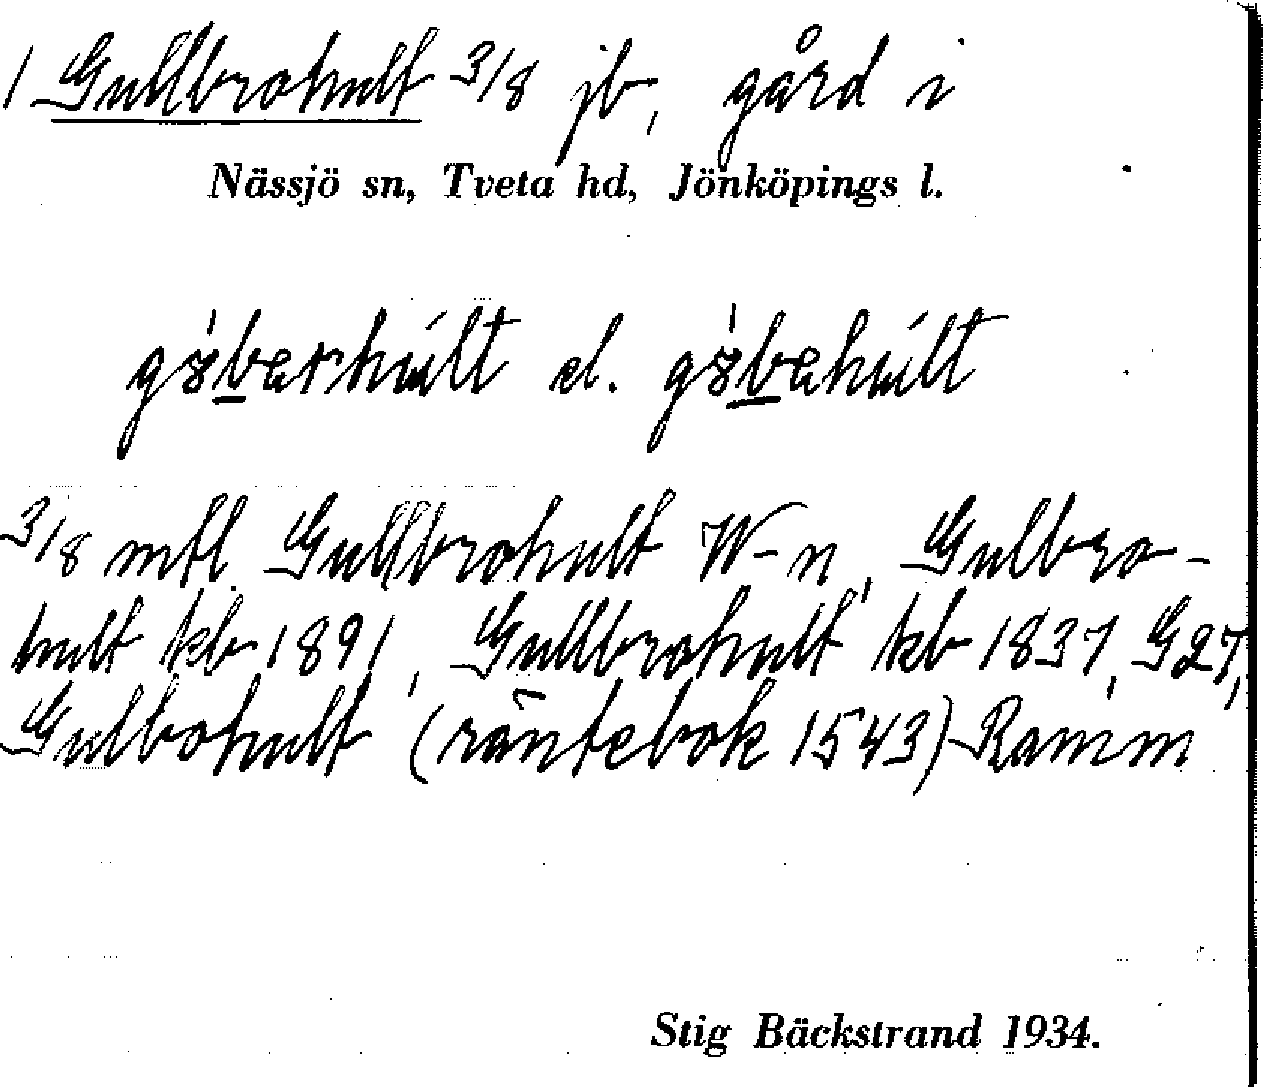 1 Gullbrohult 3/8 jb, gård i
Nässjö sn, Tveta hd, Jönköpings l.
el.
3/8 mtl Gullbrohult W-n, Gulbro-
hult kb 1891, Gullbrohult kb 1837, G27,
Gulbohult (räntebok 1543) Ramm
Stig Bäckstrand 1934.